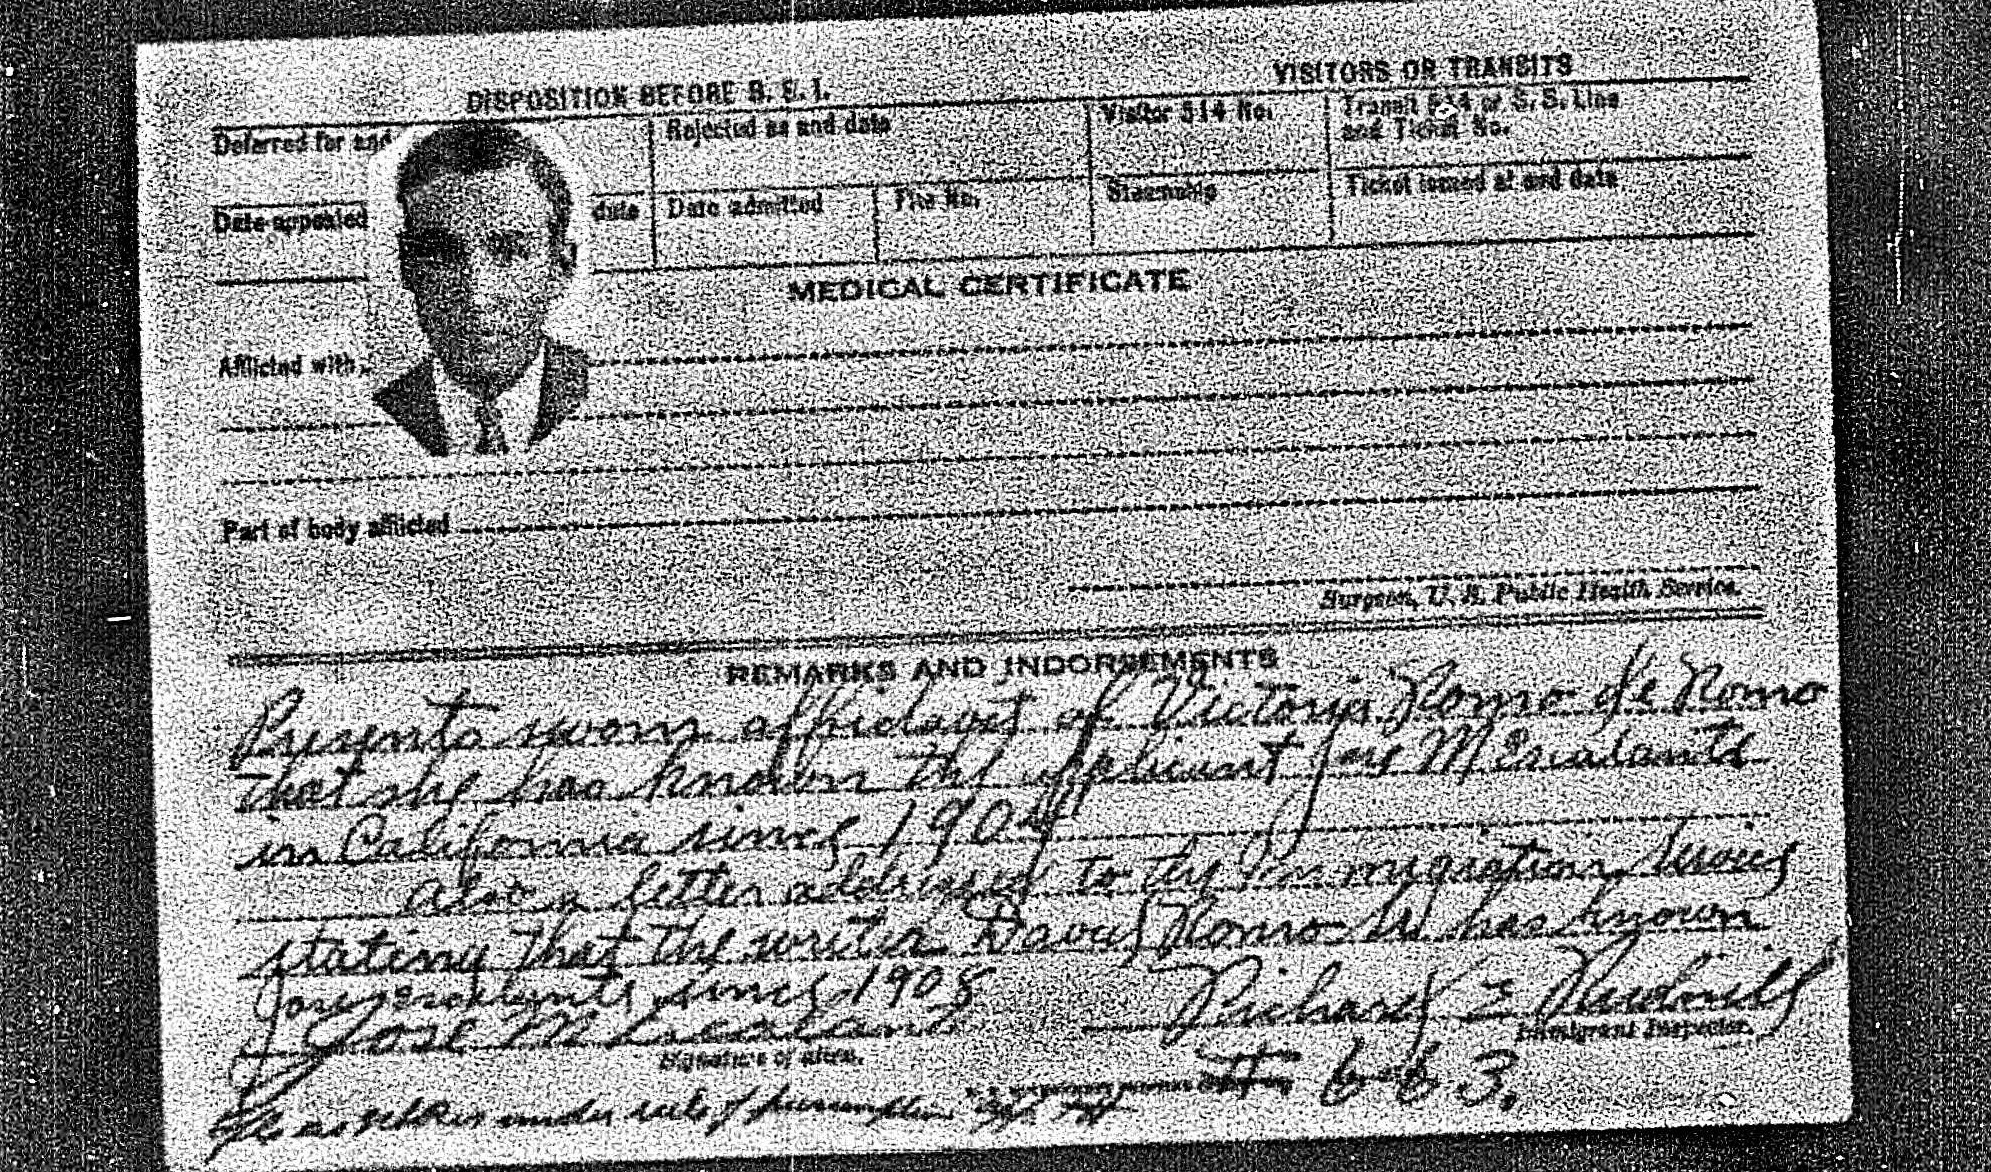 DISPOSITION BEFORE B. S. I.
VISITORS OR TRANSITS
Deferred for and
Rejected as and date
Visitor 514 No.
Transit 514 or S. S. Line
and Ticket No.
Date appealed
date
Date admitted
File No.
Steamship
Ticket issued at and date
MEDICAL CERTIFICATE
Afflicted with
Part of body afflicted
Surgeon, U. S. Public Health Service.
REMARKS AND INDORSEMENTS
Presents sworn affidavit of Victoria Romo de Romo
that she has known the applicant Jose M
in California since 1904
also a letter addressed to the Immigration Service
stating that the writer David Romo has known
since 1908
Jose M
Richard E
Signature of alien.
Immigrant Inspector.
under rule of presumption
663.